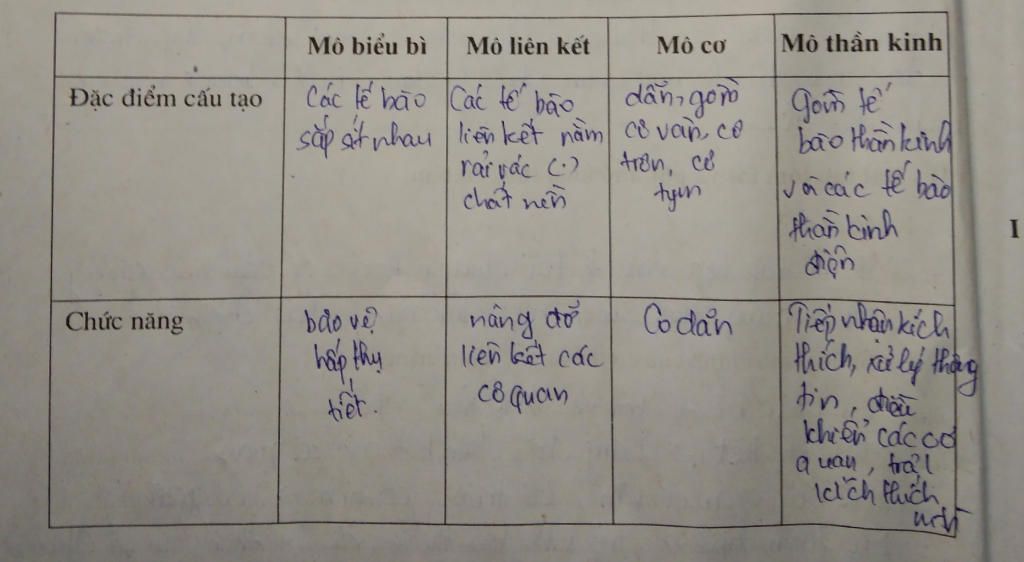 Mô biểu bì Mô liên kết Mô cơ Mô thần kinh
Đặc điểm cấu tạo
Các tế bào
sắp sít nhau
Các tế bào
liên kết nằm
rải rác (.)
chất nền
dẫn, gồm
cơ vân, cơ
trơn, cơ
tym
Gồm tế
bào thần kinh
và các tế bào
thần kinh
đệm
Chức năng
bảo vệ
hấp thụ
tiết.
nâng đỡ
liên kết các
cơ quan
Co dãn
Tiếp nhận kích
thích, xử lý thông
tin, điều
khiển các cơ
quan, trả l
kích thích
I